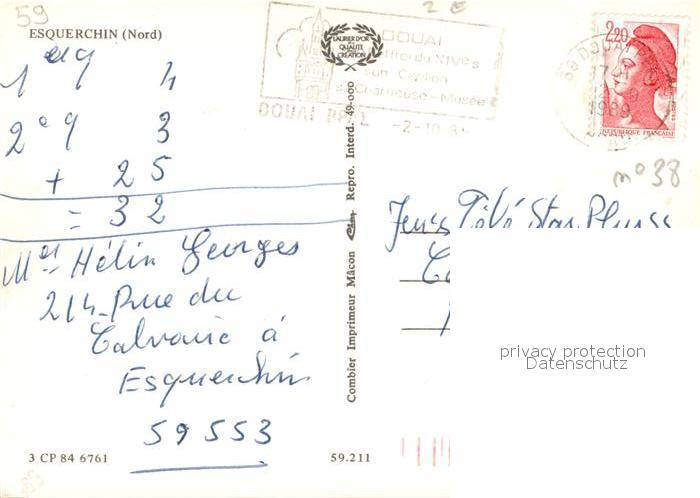 59
2 E
ESQUERCHIN (Nord)
LAURIER D'OR
DE LA
QUALITÉ
CRÉATION
DOUAI
Beffroi du XIVe s
son Carillon
sa Chartreuse - Musée
DOUAI PPAL
-2-10 8
2,20
59 DOUAI
1989
REPUBLIQUE FRANÇAISE
n° 38
1 e q 4
2 e q 3
+ 25
= 32
Hélin Georges
214 Rue du
Calvaire à
Esquerchin
59553
Jeux Télé Star
privacy protection
Datenschutz
Combier Imprimeur Mâcon Repro. Interd. 49-000
3 CP 84 6761
59.211